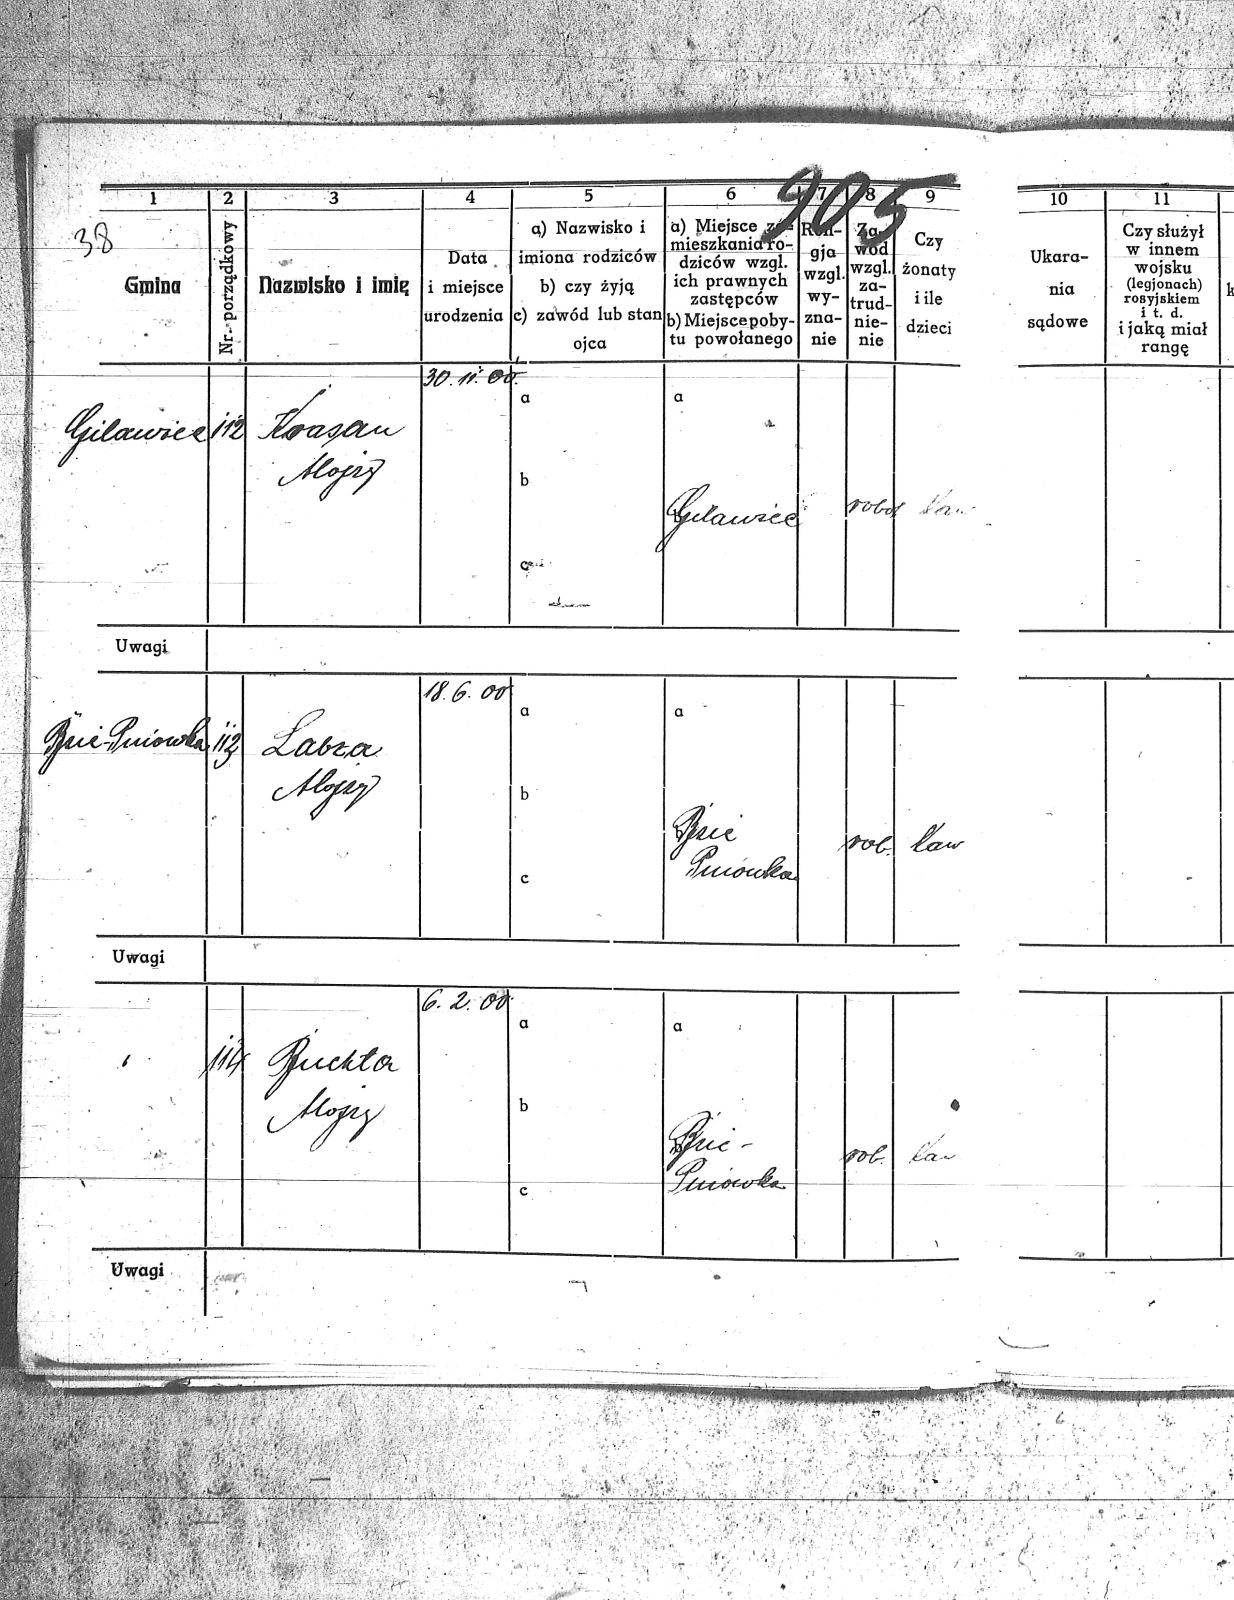 905
38
1 2 3 4 5 6 7 8 9 10 11
Gmina
Nr. porządkowy
Nazwisko i imię
Data
i miejsce
urodzenia
a) Nazwisko i
imiona rodziców
b) czy żyją
c) zawód lub stan
ojca
a) Miejsce za-
mieszkania ro-
dziców wzgl.
ich prawnych
zastępców
b) Miejsce poby-
tu powołanego
Reli-
gja
wzgl.
wy-
zna-
nie
Za-
wód
wzgl.
za-
trud-
nie-
nie
Czy
żonaty
i ile
dzieci
Ukara-
nia
sądowe
Czy służył
w innem
wojsku
(legjonach)
rosyjskiem
i t. d.
i jaką miał
rangę
k
30. 11. 00.
a a
Gilawice 112 Krasan
Alojzy
b
Gilawice robot kaw
c
Uwagi
18. 6. 00
a a
Bzie-Pniowka 113 Labza
Alojzy
b
Bzie rob. kaw
Pniówka
c
Uwagi
6. 2. 00.
a a
114 Buchta
Alojzy
b
Bzie- rob. kaw
Pniówka
c
Uwagi